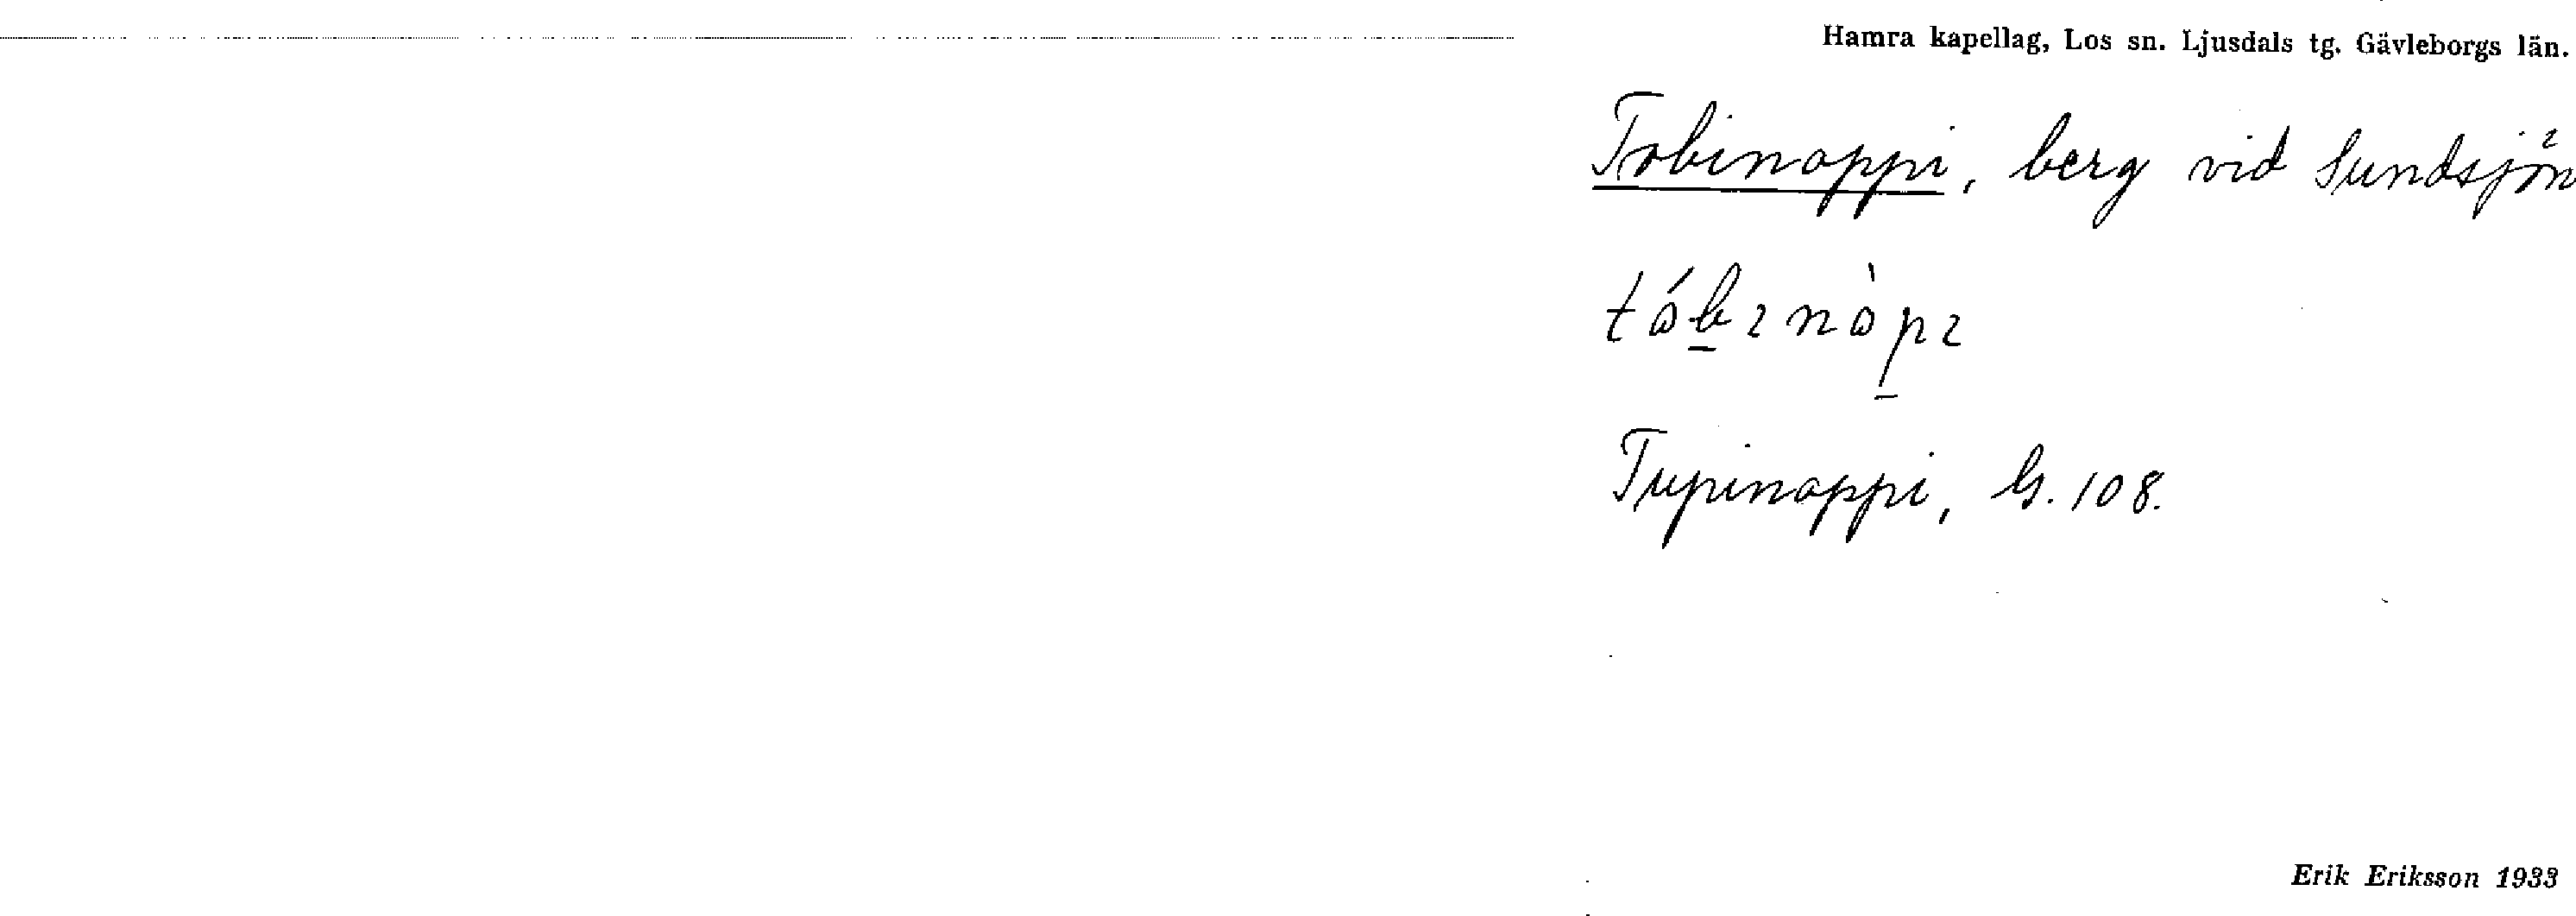 Hamra kapellag, Los sn. Ljusdals tg. Gävleborgs län.
Tobinoppi, berg vid Sundsjön
Tupinoppi, G. 108.
Erik Eriksson 1933